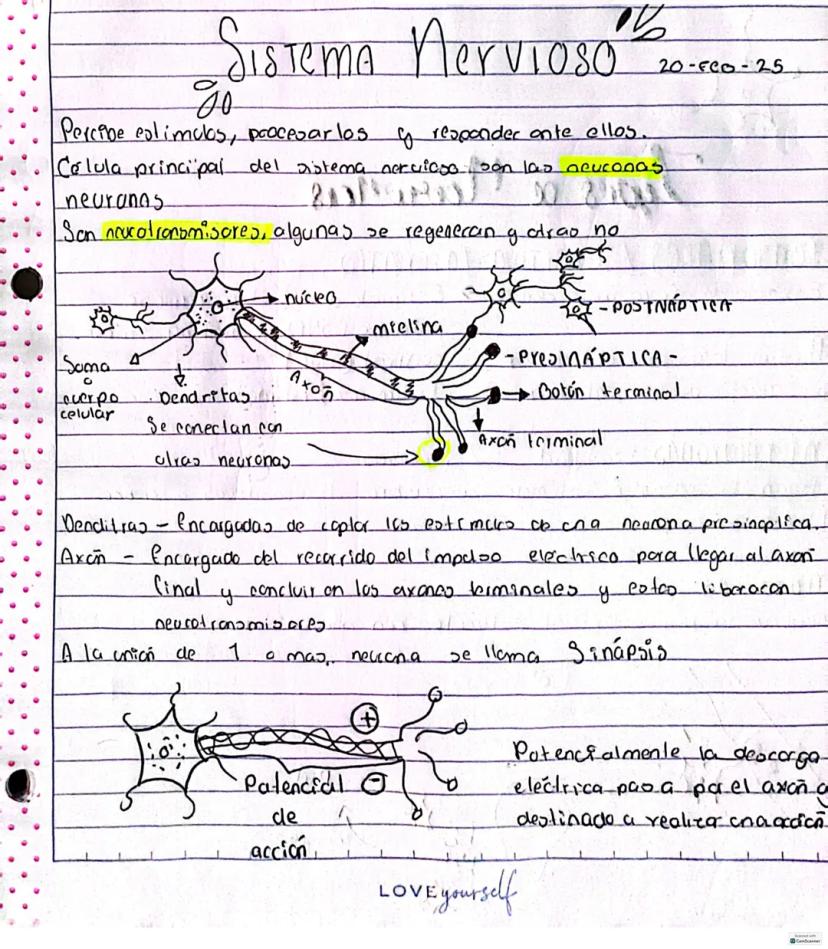 Sistema Nervioso
20-Feb-25
Percibe estimulos, procesarlos y responder ante ellos.
Celula principal del sistema nervioso son las neuronas
neuronas
Son neurotransmisores, algunas se regeneran y otras no
núcleo
mielina
Axon
Soma
o
cuerpo
celular
Dendritas
Se conectan con
otras neuronas
-POSTNÁPTICA
-PRESINÁPTICA-
Botón terminal
Axón terminal
Denditras - Encargadas de captar los estimulos de una neurona presinaptica.
Axón - Encargado del recorrido del impulso eléctrico para llegar al axon
final y concluir en los axones terminales y estos liberacon
neurotransmisores
A la unión de 1 o mas, neurona se llama Sinápsis
+
-
Potencial
de
acción
Potencialmente la descarga
eléctrica pasa por el axón y
destinado a realizar una acción
LOVE yourself
Scanned with
CamScanner